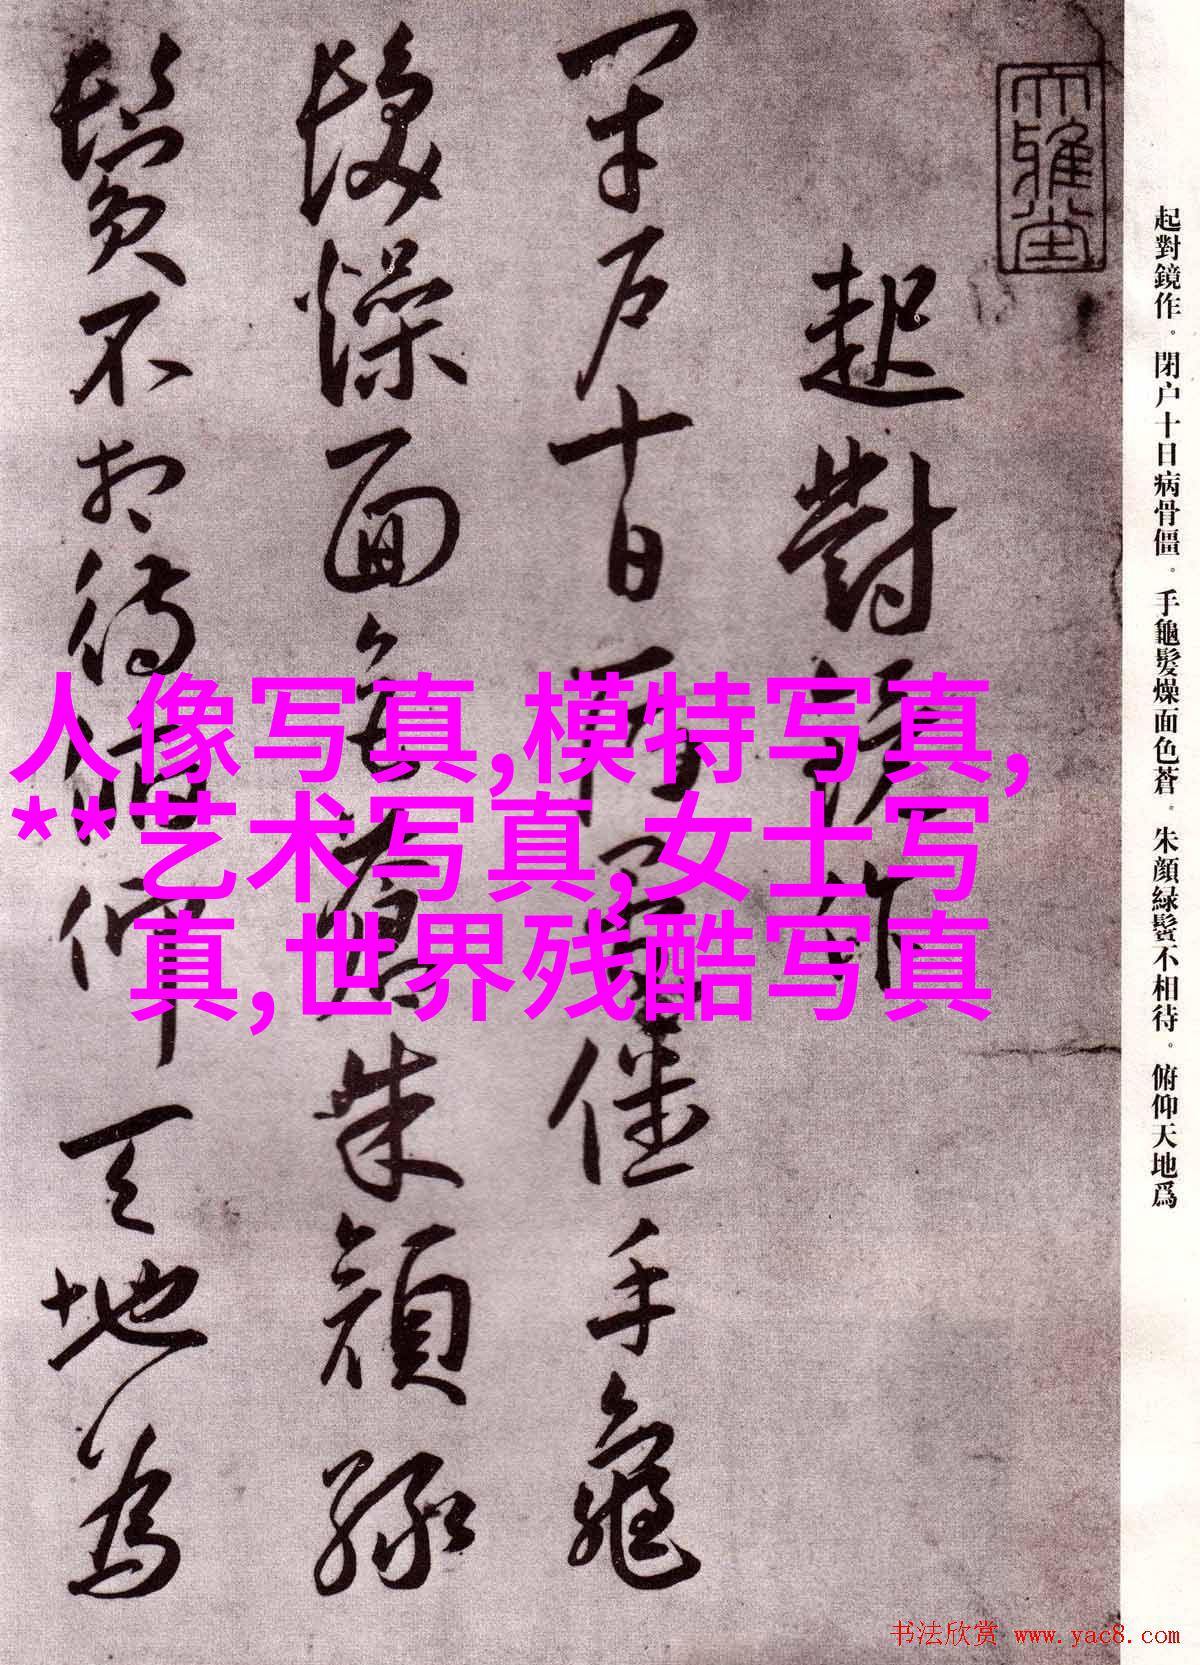 大雅堂
起對鏡作
閉户十日病骨僵手龜
髮燥面色蒼朱顔緑
鬢不相待俯仰天地為
起對鏡作。閉户十日病骨僵。手龜髮燥面色蒼。朱顔緑鬢不相待。俯仰天地爲
人像写真,模特写真,
**艺术写真,女士写
真,世界残酷写真
书法欣赏 www.yac8.com